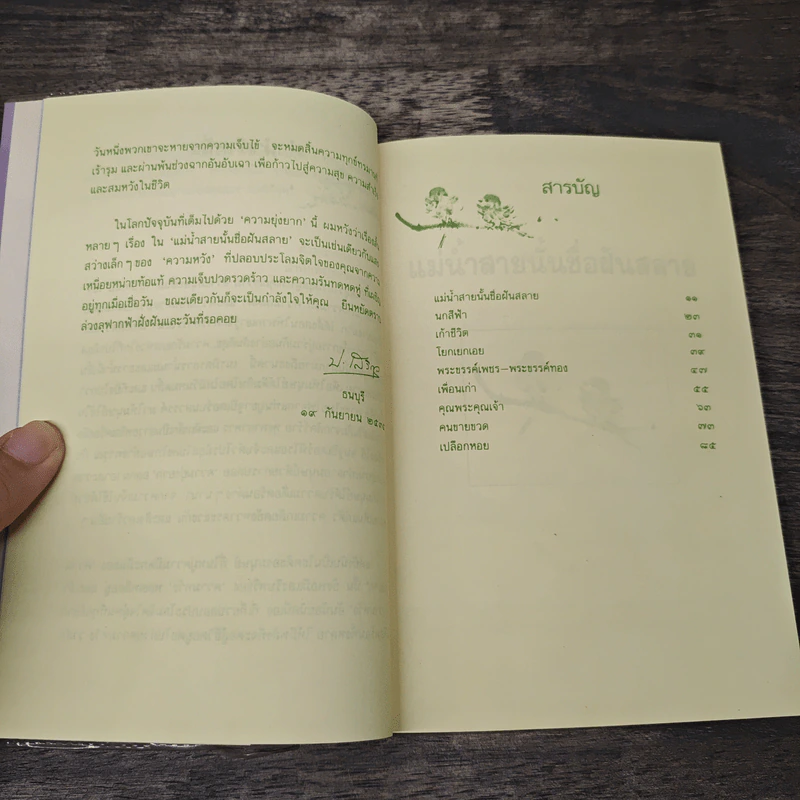 วันหนึ่งพวกเขาจะหายจากความเจ็บไข้ จะหมดสิ้นความทุกข์ทรมาน
เร้ารุม และผ่านพ้นช่วงฉากอันอับเฉา เพื่อก้าวไปสู่ความสุข
และสมหวังในชีวิต
ในโลกปัจจุบันที่เต็มไปด้วย ‘ความยุ่งยาก’ นี้ ผมหวังว่า
หลายๆ เรื่อง ใน ‘แม่น้ำสายนั้นชื่อฝันสลาย’ จะเป็นเช่นเดียวกับ
สว่างเล็กๆ ของ ‘ความหวัง’ ที่ปลอบประโลมจิตใจของคุณจากความ
เหนื่อยหน่ายท้อแท้ ความเจ็บปวดรวดร้าว และความรันทดหดหู่
อยู่ทุกเมื่อเชื่อวัน ขณะเดียวกันก็จะเป็นกำลังใจให้คุณ ยืนหยัด
ล่วงลุฟากฟ้าฝั่งฝันและวันที่รอคอย
ธนบุรี
๑๙ กันยายน
สารบัญ
แม่น้ำสายนั้นชื่อฝันสลาย ๑๑
นกสีฟ้า ๒๓
เก้าชีวิต ๓๑
โยกเยกเอย ๓๙
พระขรรค์เพชร–พระขรรค์ทอง ๔๗
เพื่อนเก่า ๕๕
คุณพระคุณเจ้า ๖๓
คนขายขวด ๗๓
เปลือกหอย ๘๕